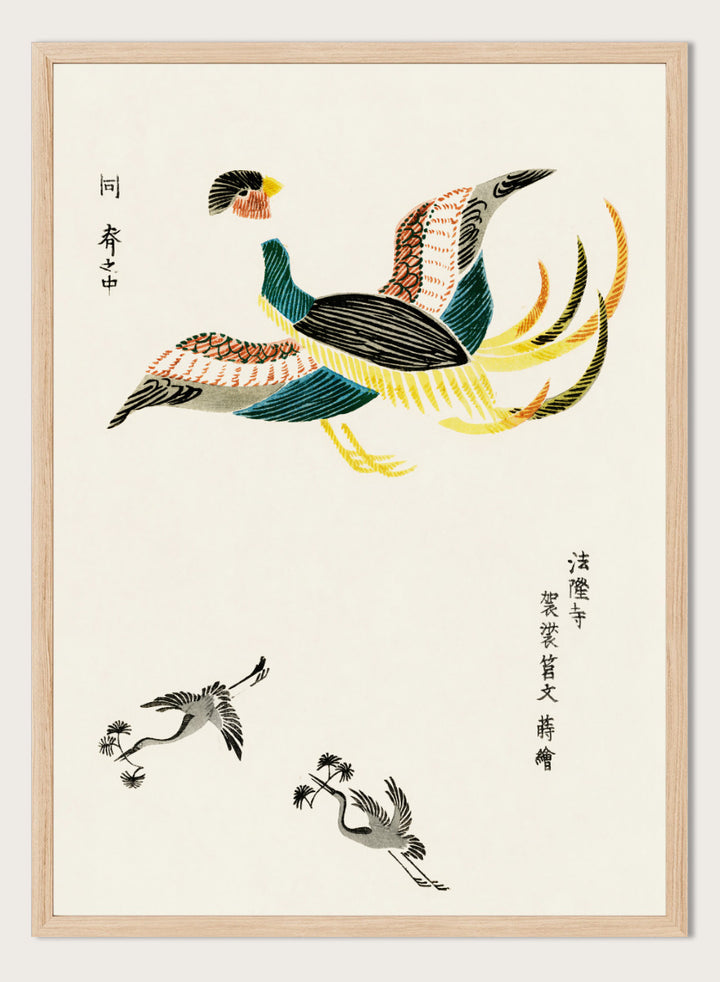 法隆寺
袈裟筥文 蒔繪
同 脊之中